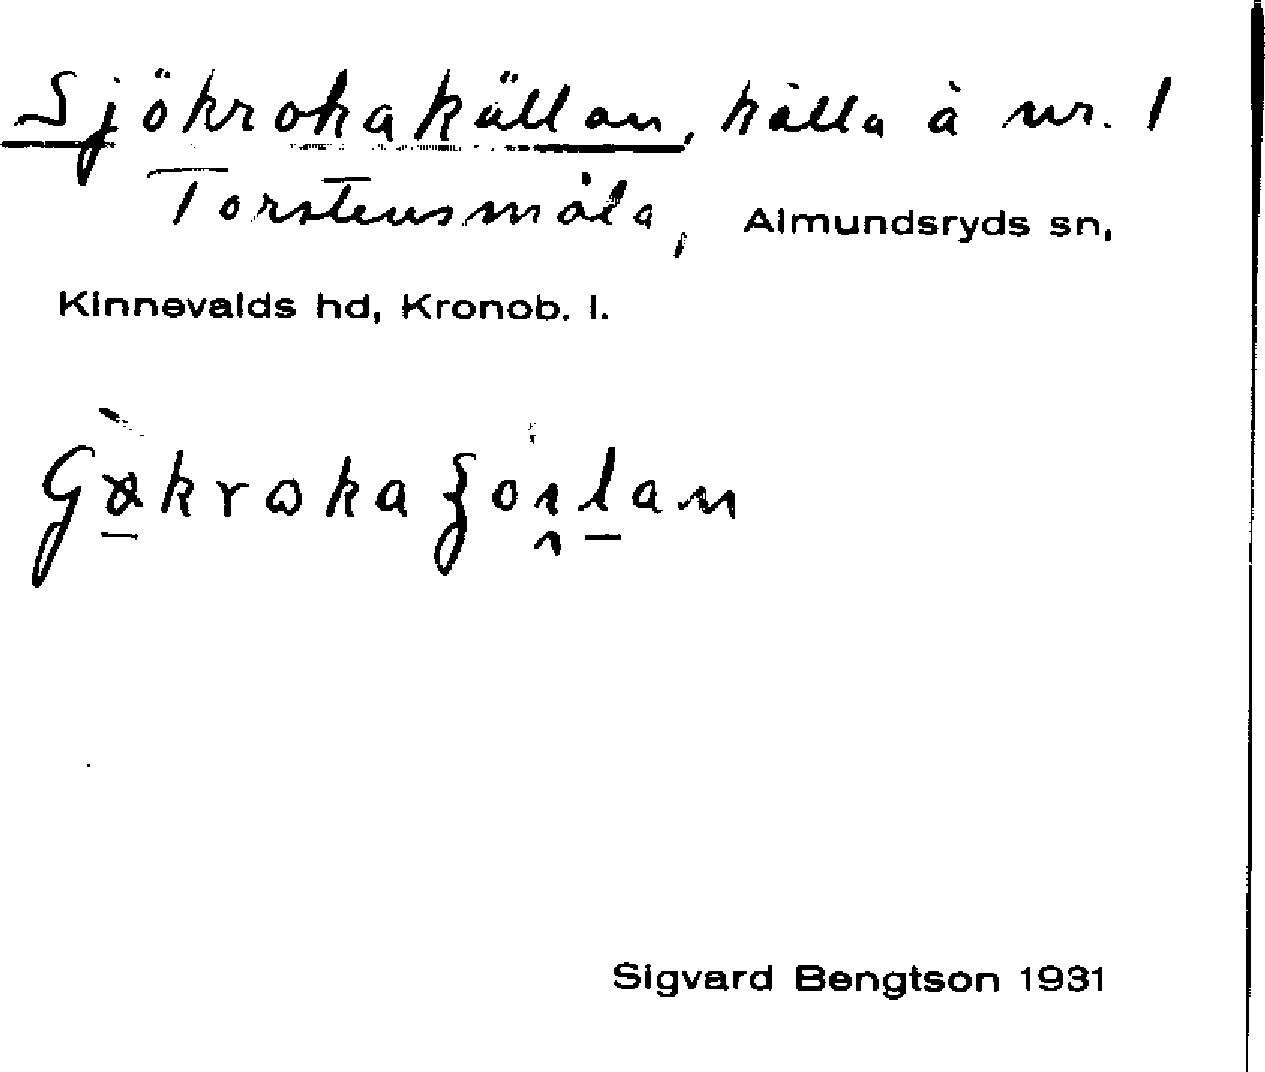 Sjökrokakällan, källa å nr. 1
Torstensmåla, Almundsryds sn,
Kinnevalds hd, Kronob. l.
Sigvard Bengtson 1931